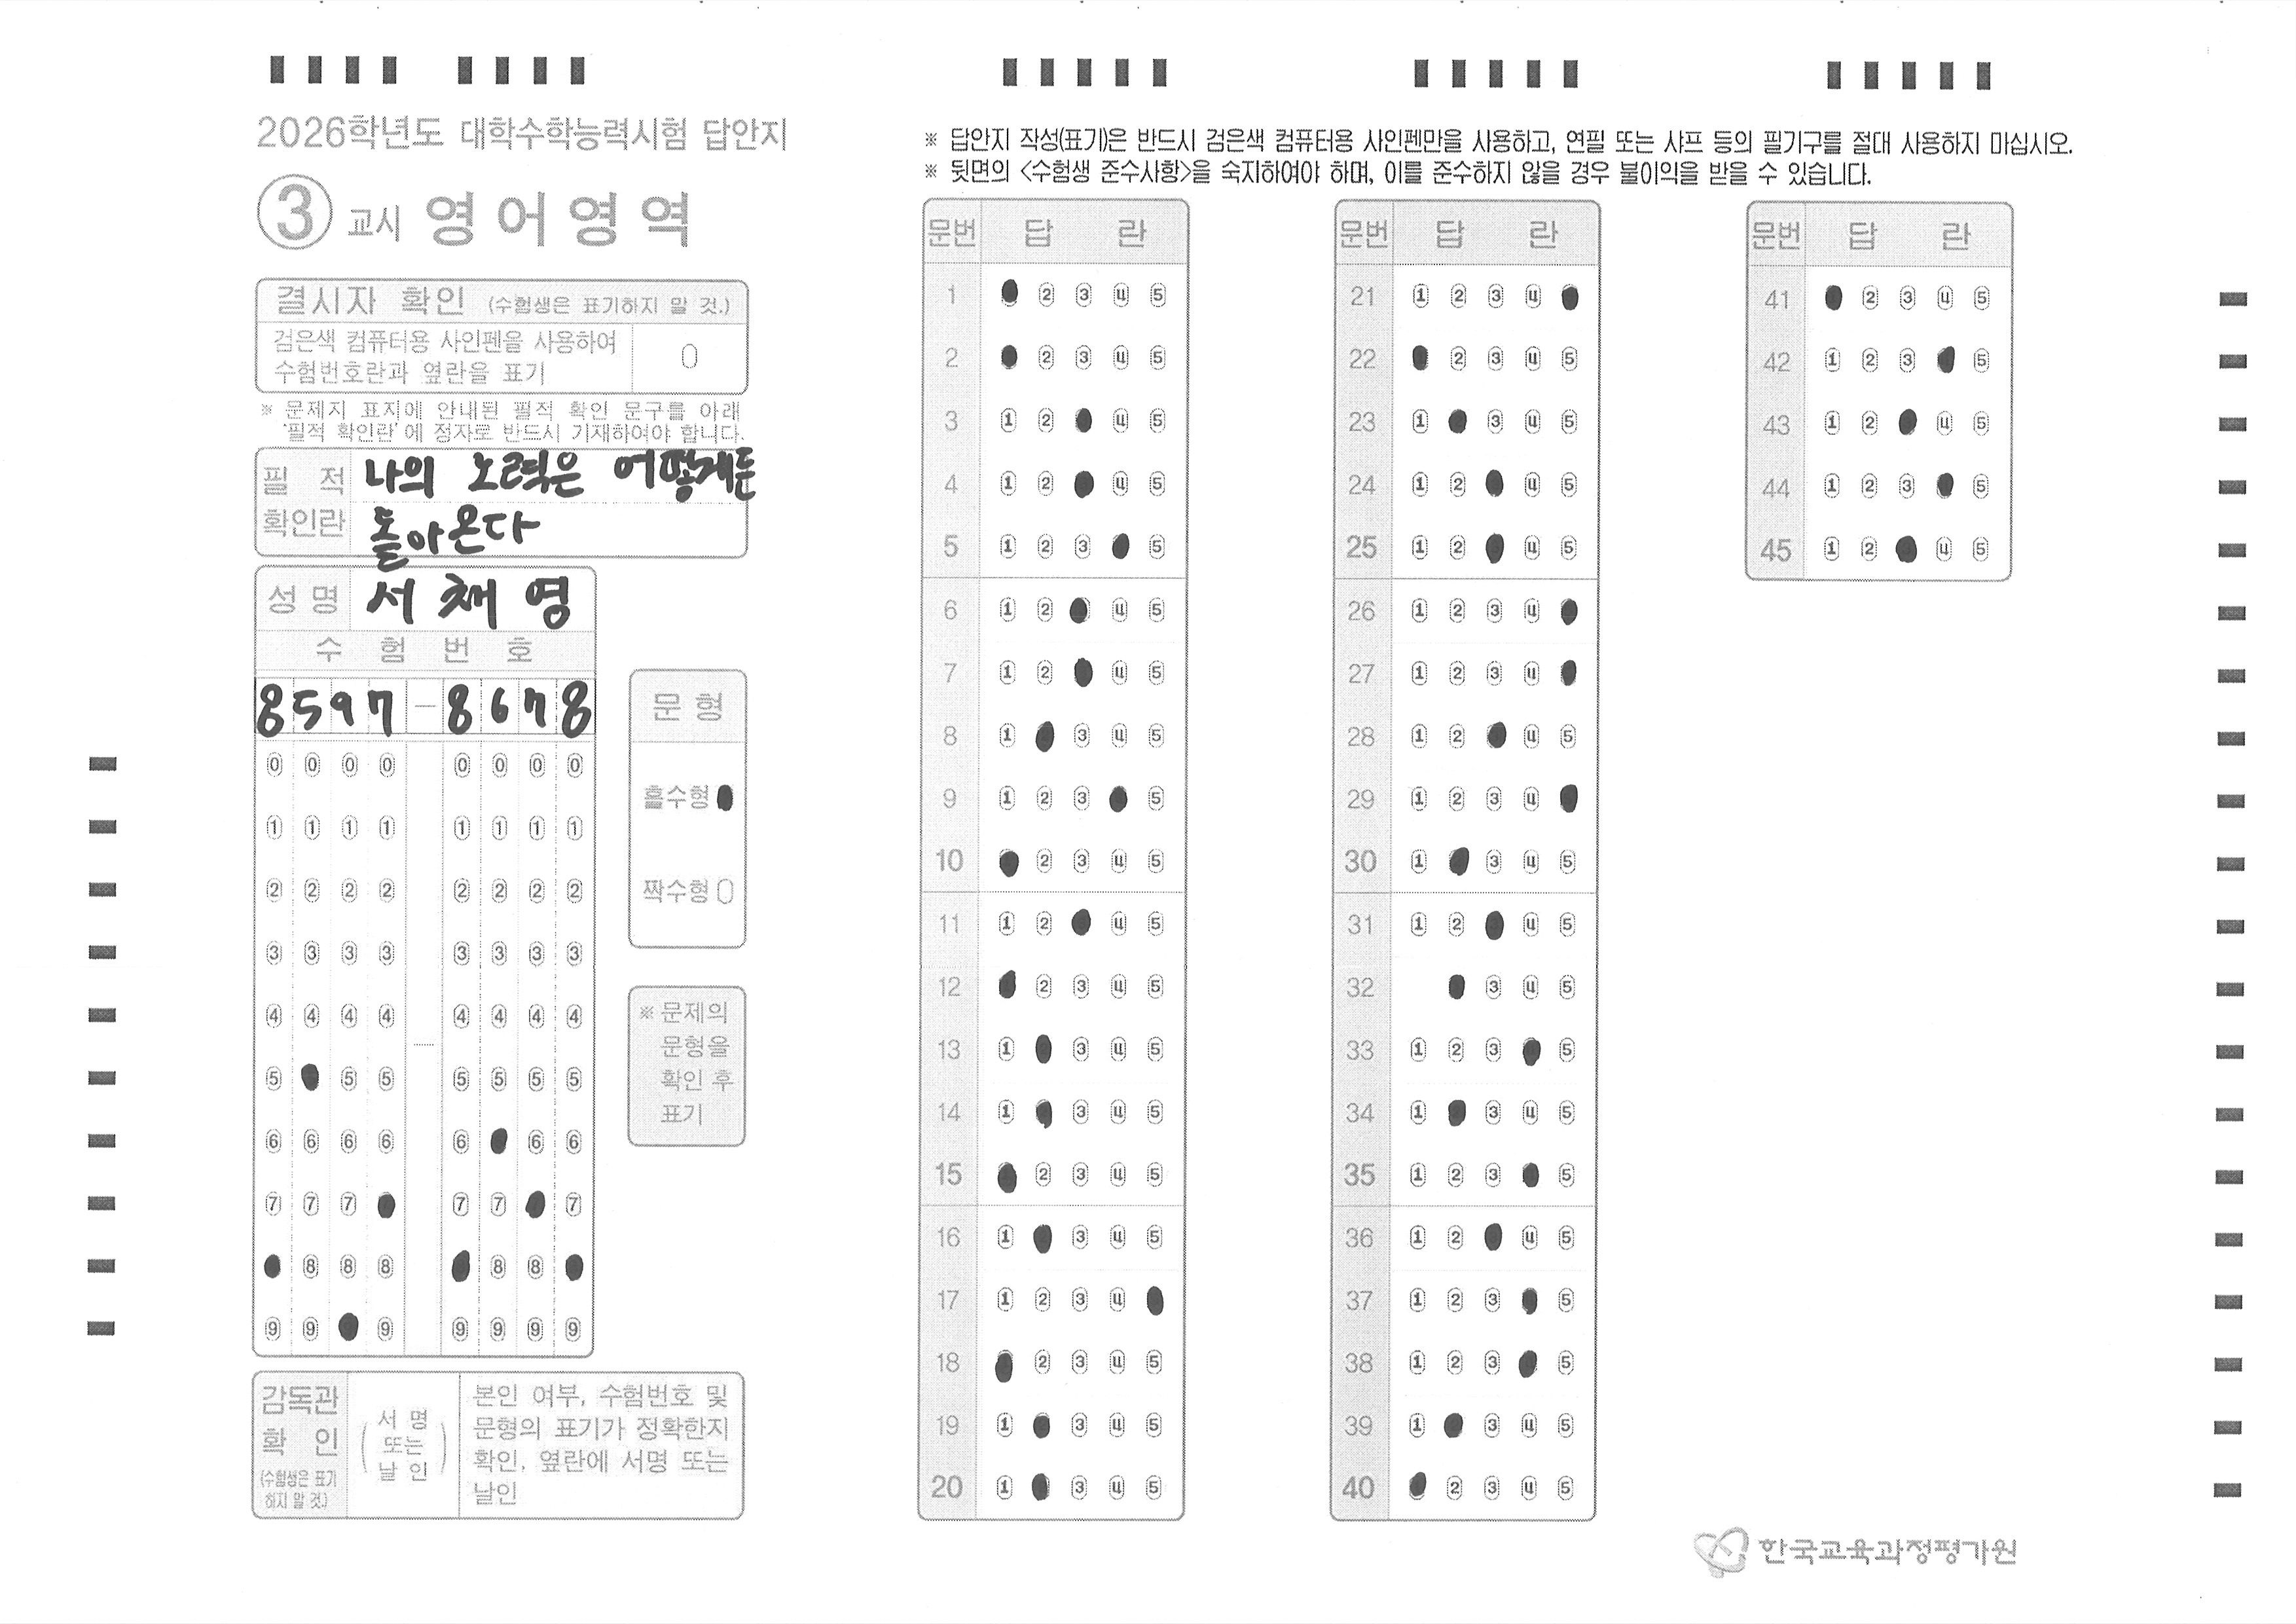 2026학년도 대학수학능력시험 답안지
③ 교시 영어영역
결시자 확인 (수험생은 표기하지 말 것.)
검은색 컴퓨터용 사인펜을 사용하여
수험번호란과 옆란을 표기
※ 문제지 표지에 안내된 필적 확인 문구를 아래
'필적 확인란'에 정자로 반드시 기재하여야 합니다.
필 적
확인란
나의 노력은 어떻게든
돌아온다
성명 서채영
수 험 번 호
8597-8678
0 0 0 0 0 0 0 0
1 1 1 1 1 1 1 1
2 2 2 2 2 2 2 2
3 3 3 3 3 3 3 3
4 4 4 4 4 4 4 4
5 5 5 5 5 5 5
6 6 6 6 6 6 6
7 7 7 7 7 7
8 8 8 8 8
9 9 9 9 9 9 9
문형
홀수형
짝수형
※ 문제의
문형을
확인 후
표기
감독관
확 인
(수험생은 표기
하지 말 것.)
서 명
또는
날 인
본인 여부, 수험번호 및
문형의 표기가 정확한지
확인, 옆란에 서명 또는
날인
※ 답안지 작성(표기)은 반드시 검은색 컴퓨터용 사인펜만을 사용하고, 연필 또는 샤프 등의 필기구를 절대 사용하지 마십시오.
※ 뒷면의 <수험생 준수사항>을 숙지하여야 하며, 이를 준수하지 않을 경우 불이익을 받을 수 있습니다.
문번 답 란
1 2 3 4 5
2 2 3 4 5
3 1 2 4 5
4 1 2 4 5
5 1 2 3 5
6 1 2 4 5
7 1 2 4 5
8 1 3 4 5
9 1 2 3 5
10 2 3 4 5
11 1 2 4 5
12 2 3 4 5
13 1 3 4 5
14 1 3 4 5
15 2 3 4 5
16 1 3 4 5
17 1 2 3 4
18 2 3 4 5
19 1 3 4 5
20 1 3 4 5
문번 답 란
21 1 2 3 4
22 2 3 4 5
23 1 3 4 5
24 1 2 4 5
25 1 2 4 5
26 1 2 3 4
27 1 2 3 4
28 1 2 4 5
29 1 2 3 4
30 1 3 4 5
31 1 2 4 5
32 3 4 5
33 1 2 3 5
34 1 3 4 5
35 1 2 3 5
36 1 2 4 5
37 1 2 3 5
38 1 2 3 5
39 1 3 4 5
40 2 3 4 5
문번 답 란
41 2 3 4 5
42 1 2 3 5
43 1 2 4 5
44 1 2 3 5
45 1 2 4 5
한국교육과정평가원